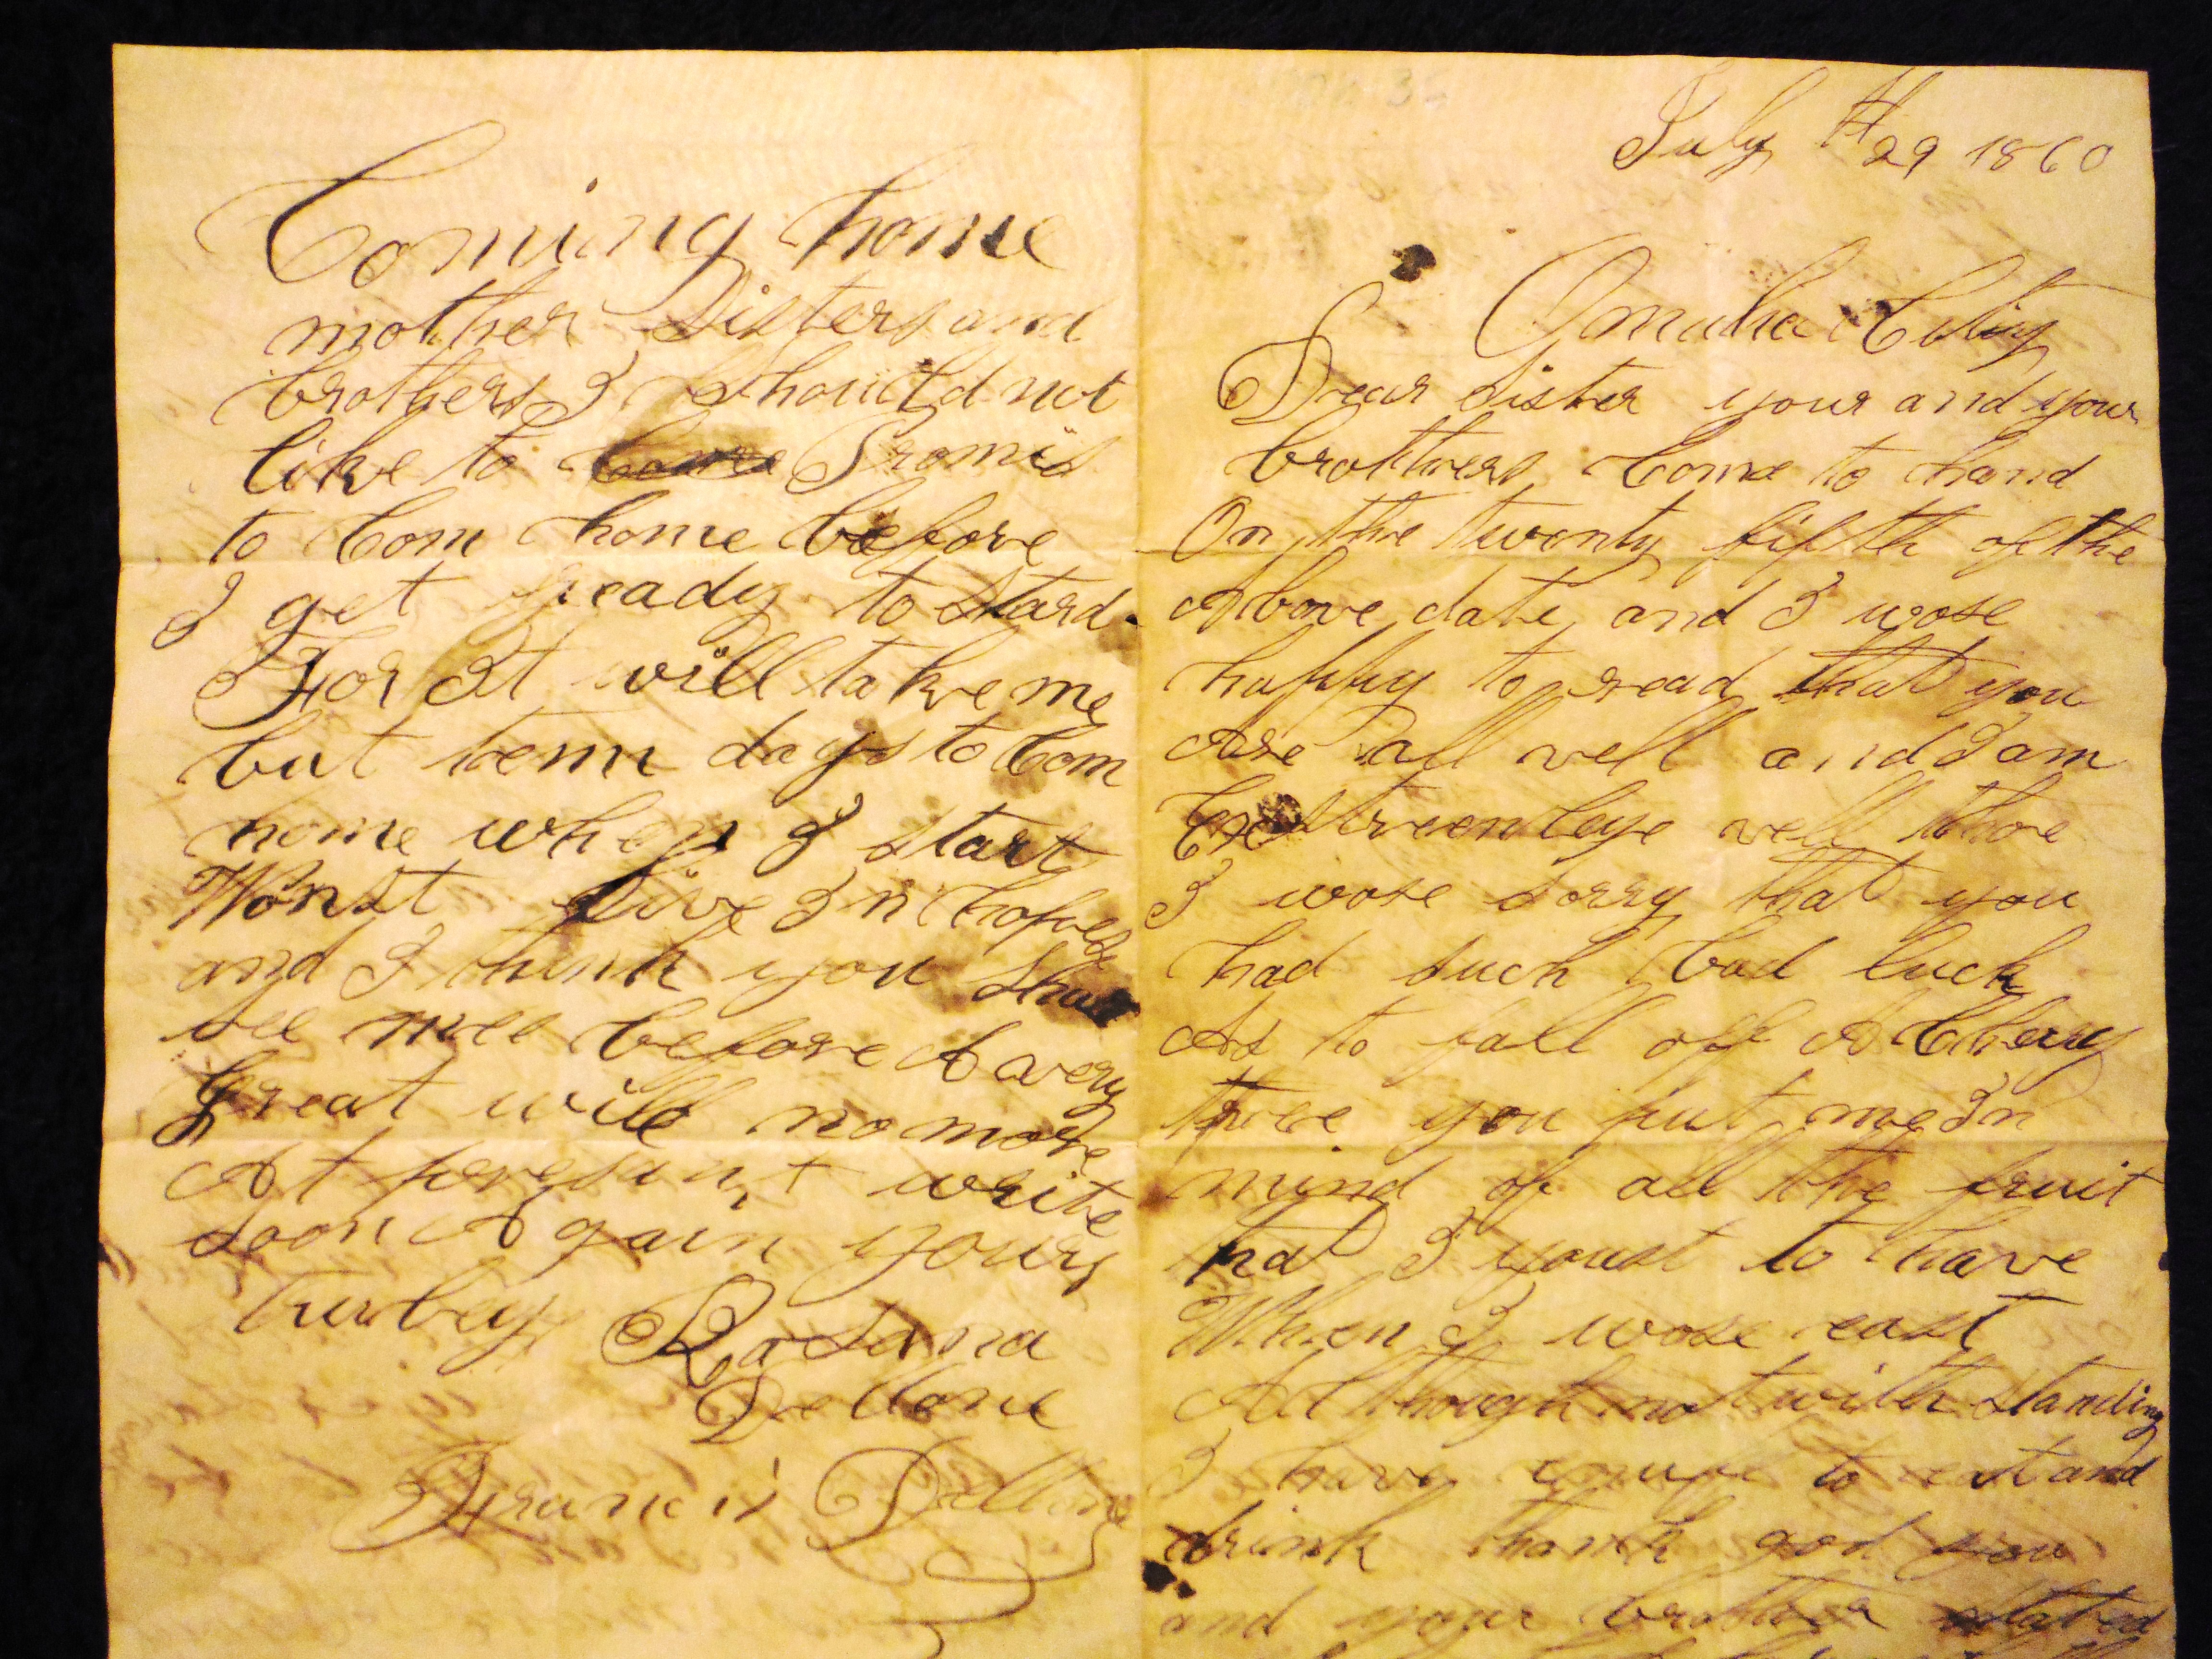 July th 29 1860
Omaha City
Dear Sister your and your
brothers Come to hand
On the twenty fifth of the
Above date and I wose
happy to read that you
Are all well and I am
well thoe
I wose sorry that you
had such bad luck
As to fall off A Chery
tree you put me In
mind of all the fruit
hat I youst to have
When I wose east
Although notwithstanding
I have to eat and
drink thank god you
and your brother stated
Coming home
mother Sisters and
brothers I Should not
like to Come Promis
to Com home before
I get ready to Stard
For It will take me
but tenn days to Com
home when I start
Wonst live In hopes
and I think you Shall
see mee before A very
great will no more
At presunt write
soon Again yours
truley Rosana
Dellone
Francis Dellone